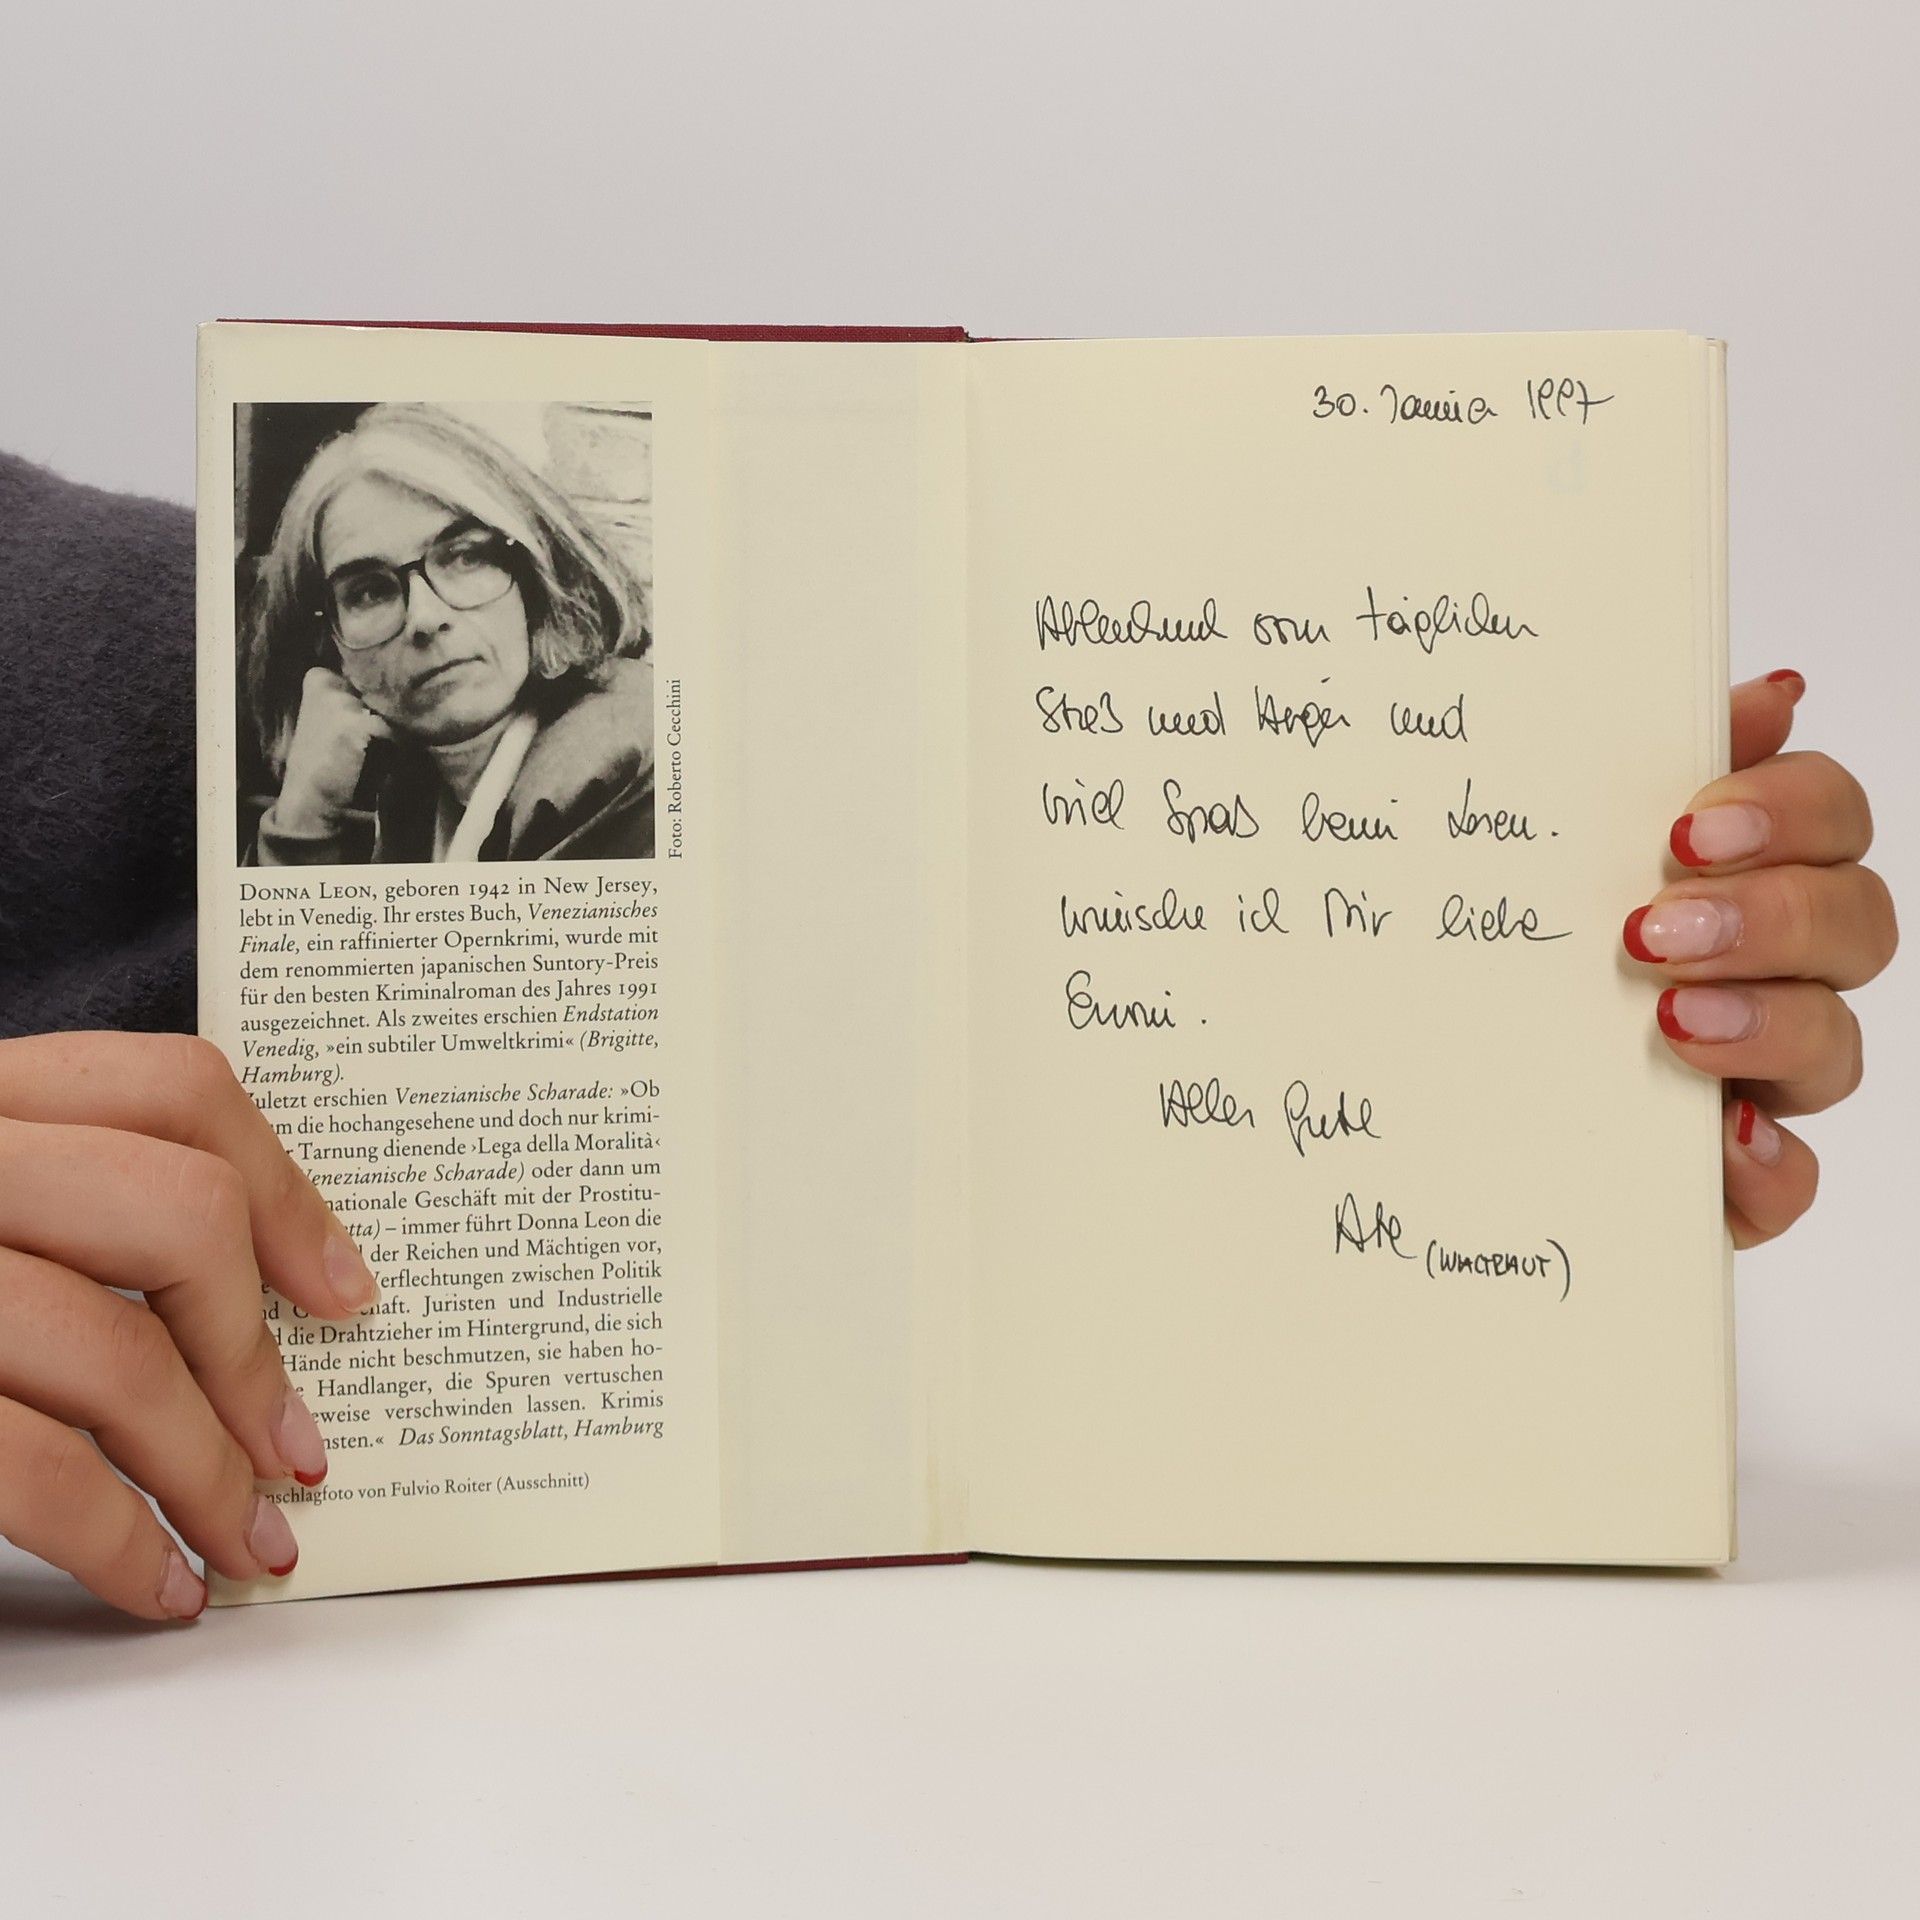 Foto: Roberto Cecchini
DONNA LEON, geboren 1942 in New Jersey,
lebt in Venedig. Ihr erstes Buch, Venezianisches
Finale, ein raffinierter Opernkrimi, wurde mit
dem renommierten japanischen Suntory-Preis
für den besten Kriminalroman des Jahres 1991
ausgezeichnet. Als zweites erschien Endstation
Venedig, »ein subtiler Umweltkrimi« (Brigitte,
Hamburg).
Zuletzt erschien Venezianische Scharade: »Ob
um die hochangesehene und doch nur krimi-
Tarnung dienende ›Lega della Moralità‹
Venezianische Scharade) oder dann um
nationale Geschäft mit der Prostitu-
etta) – immer führt Donna Leon die
der Reichen und Mächtigen vor,
Verflechtungen zwischen Politik
Juristen und Industrielle
die Drahtzieher im Hintergrund, die sich
Hände nicht beschmutzen, sie haben ho-
Handlanger, die Spuren vertuschen
eweise verschwinden lassen. Krimis
nsten.« Das Sonntagsblatt, Hamburg
nschlagfoto von Fulvio Roiter (Ausschnitt)
30. Januar 1997
Ablenkend vom täglichen
Streß und Ärger und
viel Spaß beim Lesen.
wünsche ich Dir liebe
Emmi.
Alles Gute
(WALTRAUT)